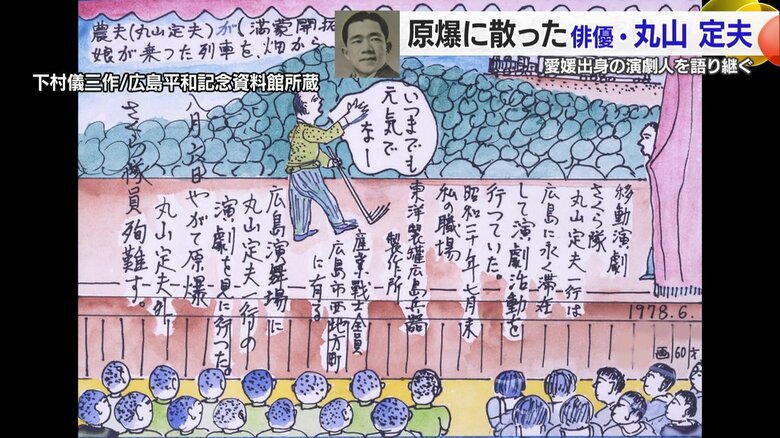 原爆に散った俳優・丸山 定夫
愛媛出身の演劇人を語り継ぐ
下村儀三作/広島平和記念資料館所蔵
農夫(丸山定夫)が(満蒙開拓
娘が乗った列車を、畑から
いつまでも
元気で
なー
移動演劇
さくら隊
丸山定夫一行は
広島に永く滞在
して演劇活動を
行っていた。
昭和二十年七月末
私の職場
東洋製罐広島兵器
製作所
産業戦士全員
広島市西地方町
に有る
広島演舞場に
丸山定夫一行の
演劇を見に行った。
八月六日やがて原爆
丸山定夫外
さくら隊員殉難す。
1978.6.
画60才